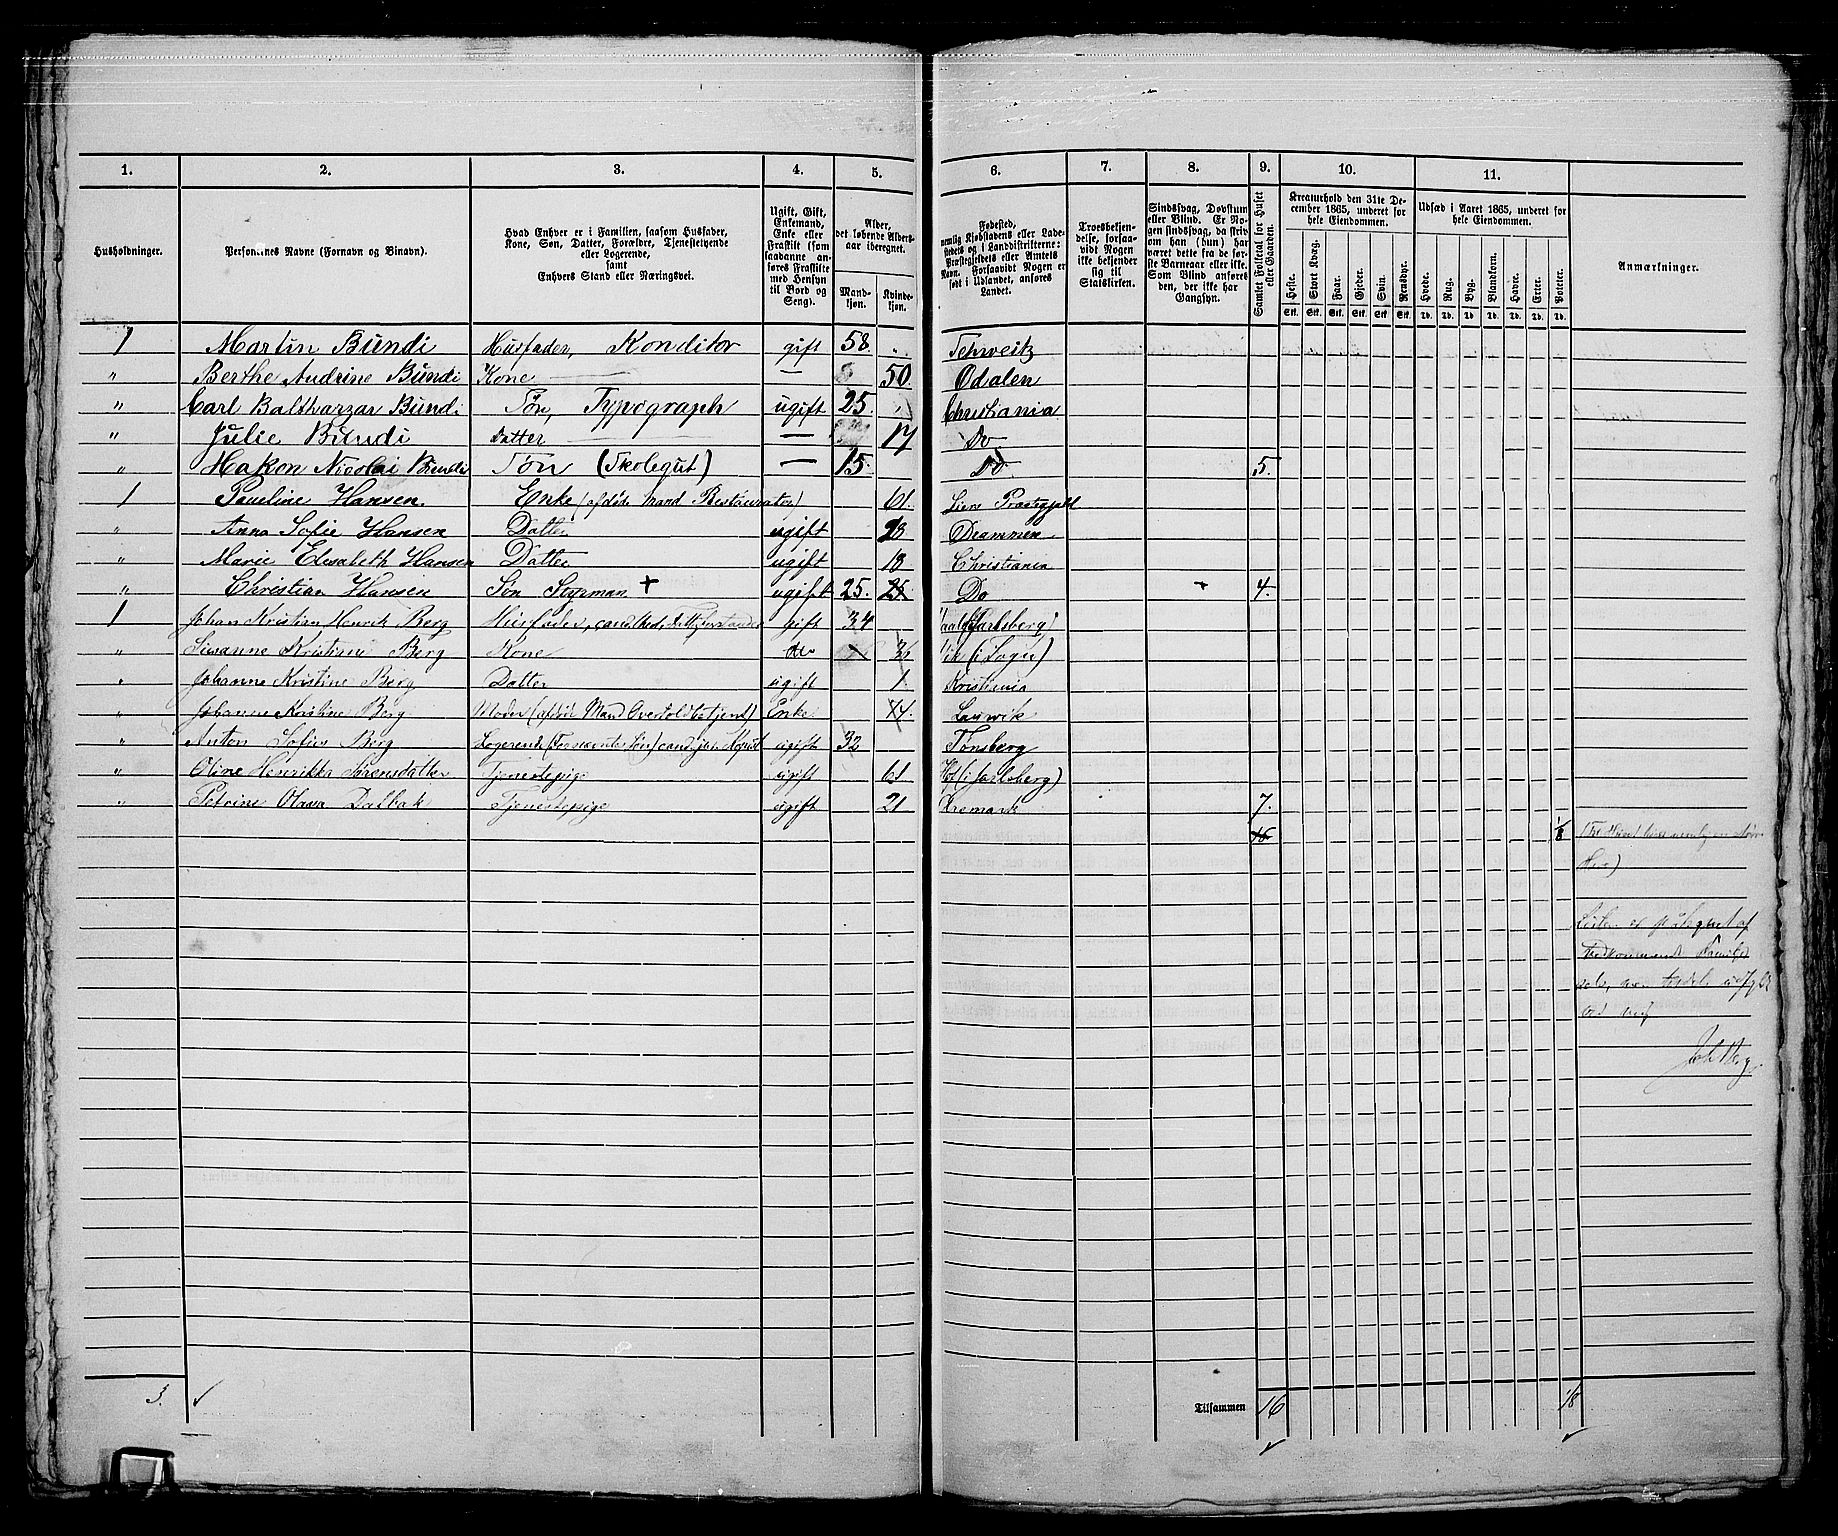 1. 2. 3. 4. 5. 6. 7. 8. 9. 10. 11.
Husholdninger.
Personernes Navne (Fornavn og Binavn).
Hvad Enhver er i Familien, saasom Husfader,
Kone, Søn, Datter, Forældre, Tjenestetyende
eller Logerende,
samt
Enhvers Stand eller Næringsvei.
Ugift, Gift,
Enkemand,
Enke eller
Fraskilt (som
saadanne an-
føres Fraskilte
med Hensyn
til Bord og
Seng).
Alder,
det løbende Alders-
aar iberegnet.
Mand-
kjøn.
Kvinde-
kjøn.
Fødested,
nemlig Kjøbstadens eller Lade-
stedets og i Landdistrikterne:
Præstegjeldets eller Amtets
Navn. Forsaavidt Nogen er
født i Udlandet, anføres
Landet.
Troesbekjen-
delse, forsaa-
vidt Nogen
ikke bekjender
sig til
Statskirken.
Sindssvag, Døvstum
eller Blind. Er No-
gen sindssvag, da skriv
om han (hun) har
været dette fra de før-
ste Barneaar eller ikke.
Som Blind anføres
den, der ikke har
Gangsyn.
Samlet Folketal for Huset
eller Gaarden.
Kreaturhold den 31te De-
cember 1865, underet for
hele Eiendommen.
Heste. Stort Kvæg. Faar. Gjeder. Svin. Rensdyr.
Stk. Stk. Stk. Stk. Stk. Stk.
Udsæd i Aaret 1865, underet for
hele Eiendommen.
Hvede. Rug. Byg. Blandkorn. Havre. Erter. Poteter.
Td. Td. Td. Td. Td. Td. Td.
Anmærkninger.
1 Martin Bundi Husfader, Konditor gift 58. " Schweitz
" Berthe Andrine Bundi Kone — 50. Odalen
" Carl Balthazzar Bundi Søn, Typograph ugift 25. " Christiania
" Julie Bundi Datter — 17 Do
" Hakon Nicolai Bundi Søn (Skolegut) — 15. Do. 5.
1 Pauline Hansen. Enke (afdøde Mand Restaurator) 61. Liers Præstegjeld
" Anna Sofie Hansen Datter ugift 28 Drammen
" Marie Elisabeth Hansen Datter ugift 18 Christiania
" Christian Hansen Søn Styrman + ugift 25. 25 Do + 4.
1 Johan Kristian Henrik Berg Husfader, cand. theol. gift 34 (Jarlsberg)
" Susanne Kristine Berg Kone do 36 Vik (i Sogn)
" Johanne Kristine Berg Datter ugift 1 Kristiania
" Johanne Kristine Berg Moder (afdød Mand Overtoldbetjent) Enke 74. Laurvik
" Anton Sofus Berg Logerende cand. jur. ugift 32 Tønsberg
" Oline Henrikka Sørensdatter Tjenestepige ugift 61 Hof (i Jarlsberg)
" Petrine Olava Dalbak Tjenestepige ugift 21 Kremark 7.
16 1/8
af
3. ✓ Tilsammen 16 1/8
✓ ✓